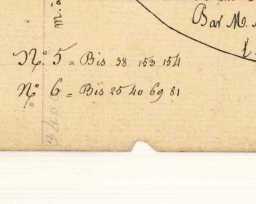 Bar M.
m.
N.º 5 = Bis 38 153 154
N.º 6 = Bis 25 40 69 81